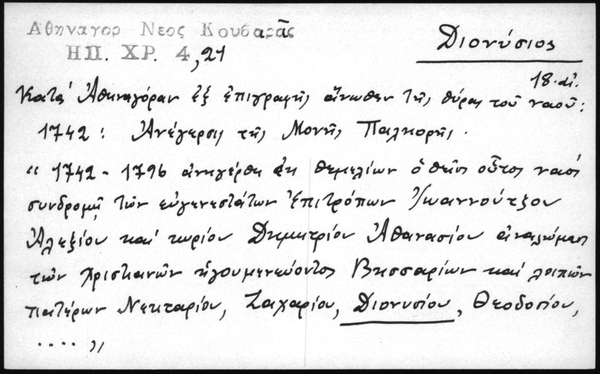 Ἀθηναγορ Νεος Κουβαρᾶς
ΗΠ. ΧΡ. 4, 21
Διονύσιος
18. αἰ.
Κατά Ἀθηναγόραν ἐξ ἐπιγραφῆς ἄνωθεν τῆς θύρας τοῦ ναοῦ:
1742: Ἀνέγερσις τῆς Μονῆς Παλιορῆς.
" 1742 - 1796 ἀνηγέρθη ἐκ θεμελίων ὁ θεῖος οὗτος ναός
συνδρομῇ τῶν εὐγενεστάτων ἐπιτρόπων Ἰωαννούτζου
Ἀλεξίου καί κυρίου Δημητρίου Ἀθανασίου ἀναλώμασι
τῶν χριστιανῶν ἡγουμενεύοντος Βησσαρίων καί λοιπῶν
πατέρων Νεκταρίου, Ζαχαρίου, Διονυσίου, Θεοδοσίου,
.... "